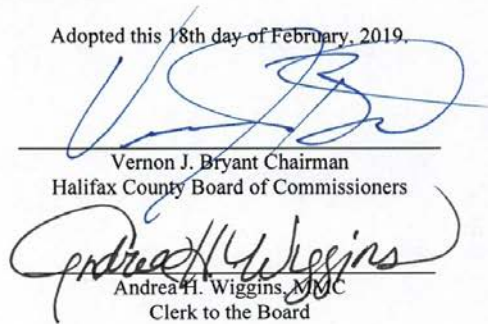 Adopted this 18th day of February, 2019.
Vernon J. Bryant Chairman
Halifax County Board of Commissioners
Andrea H. Wiggins
Andrea H. Wiggins, MMC
Clerk to the Board